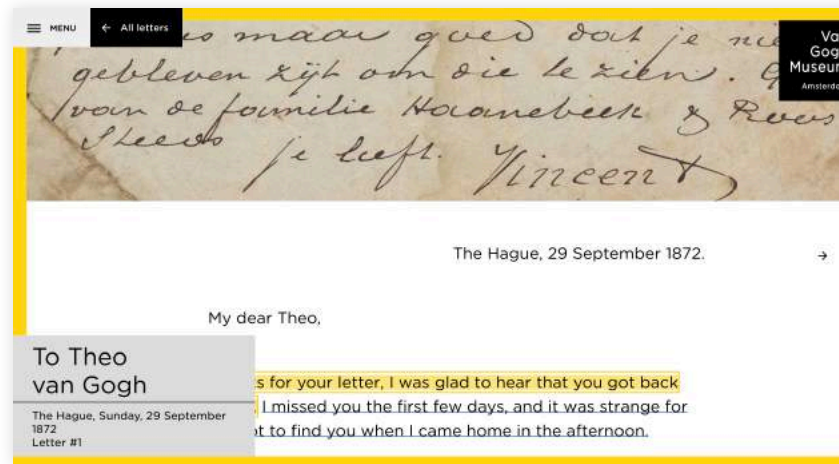 MENU
← All letters
maar goed dat je nie
gebleven zijt om die te zien. G
van de familie Haanebeek & Roos
Steeds
je liefh. Vincent
Va
Gog
Museu
Amsterda
The Hague, 29 September 1872.
→
My dear Theo,
To Theo
van Gogh
The Hague, Sunday, 29 September
1872
Letter #1
s for your letter, I was glad to hear that you got back
I missed you the first few days, and it was strange for
t to find you when I came home in the afternoon.